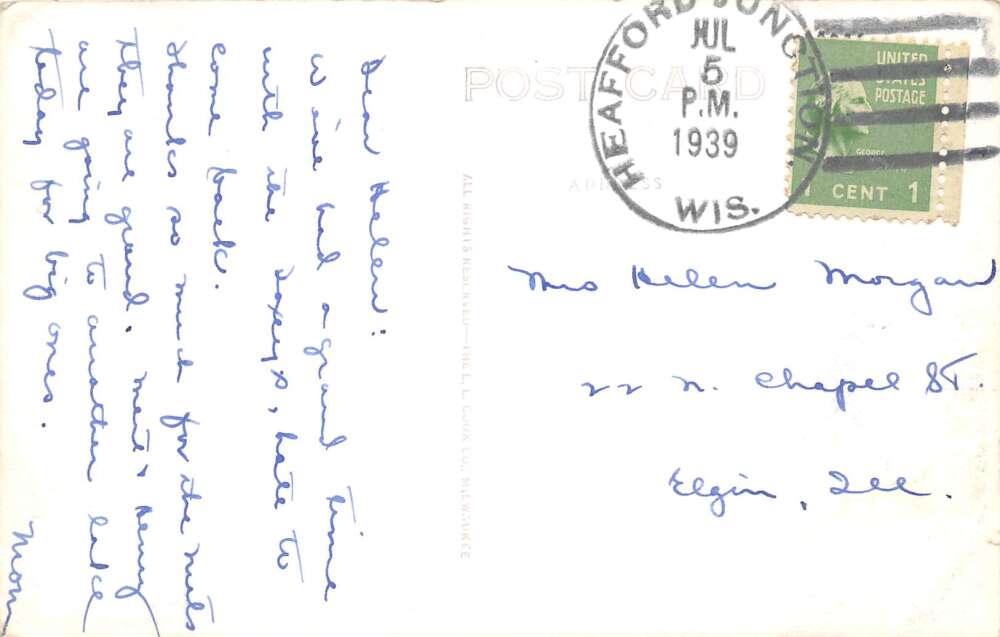 Dear Helen:
We've had a grand time
with the Doxey's, hate to
come back.
Thanks so much for the nuts
they are grand. Mert & Henry
are going to another lake
today for big ones.
Mom
POST CARD
ADDRESS
ALL RIGHTS RESERVED—THE L. L. COOK CO., MILWAUKEE
HEAFFORD JUNCTION
JUL
5
P.M.
1939
WIS.
UNITED
STATES
POSTAGE
GEORGE
1 CENT 1
Mrs Helen Morgan
22 N. Chapel St.
Elgin, Ill.